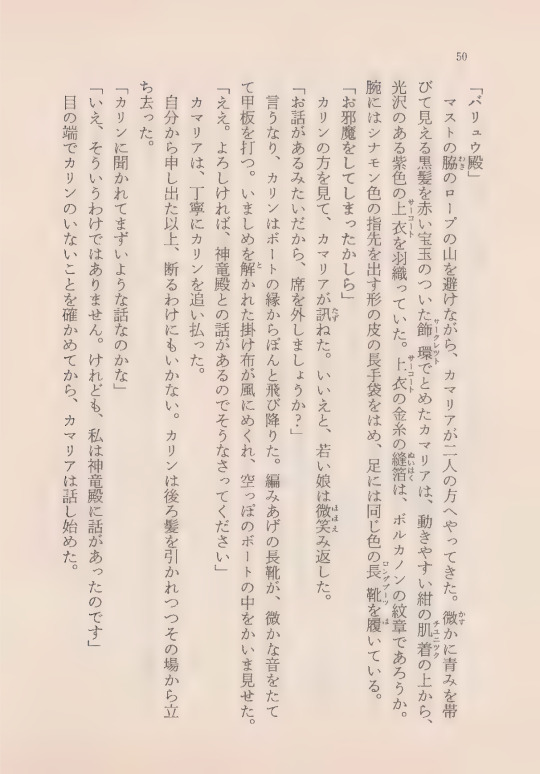 50
「バリュウ殿」
　マストの脇のロープの山を避けながら、カマリアが二人の方へやってきた。微かに青みを帯
びて見える黒髪を赤い宝玉のついた飾環でとめたカマリアは、動きやすい紺の肌着の上から、
光沢のある紫色の上衣を羽織っていた。上衣の金糸の縫箔は、ボルカノンの紋章であろうか。
腕にはシナモン色の指先を出す形の皮の長手袋をはめ、足には同じ色の長靴を履いている。
「お邪魔をしてしまったかしら」
　カリンの方を見て、カマリアが訊ねた。いいえと、若い娘は微笑み返した。
「お話があるみたいだから、席を外しましょうか？」
　言うなり、カリンはボートの縁からぽんと飛び降りた。編みあげの長靴が、微かな音をたて
て甲板を打つ。いましめを解かれた掛け布が風にめくれ、空っぽのボートの中をかいま見せた。
「ええ。よろしければ、神竜殿との話があるのでそうなさってください」
　カマリアは、丁寧にカリンを追い払った。
　自分から申し出た以上、断るわけにもいかない。カリンは後ろ髪を引かれつつその場から立
ち去った。
「カリンに聞かれてまずいような話なのかな」
「いえ、そういうわけではありません。けれども、私は神竜殿に話があったのです」
　目の端でカリンのいないことを確かめてから、カマリアは話し始めた。